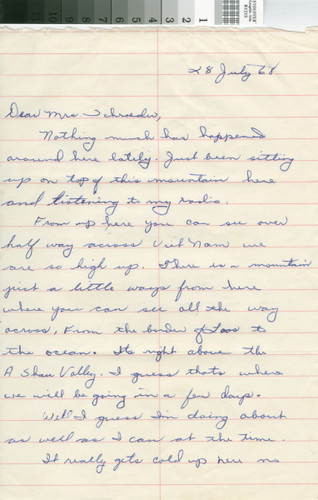 28 July 68
Dear Mrs. Schroeder,
Nothing much has happened
around here lately. Just been sitting
up on top of this mountain here
and listening to my radio.
From up here you can see over
half way across Viet Nam we
are so high up. There is a mountain
just a little ways from here
where you can see all the way
across, From the border of Laos to
the ocean. Its right above the
A Shau Valley. I guess thats where
we will be going in a few days.
Well I guess Im doing about
as well as I can at the time.
It really gets cold up here no